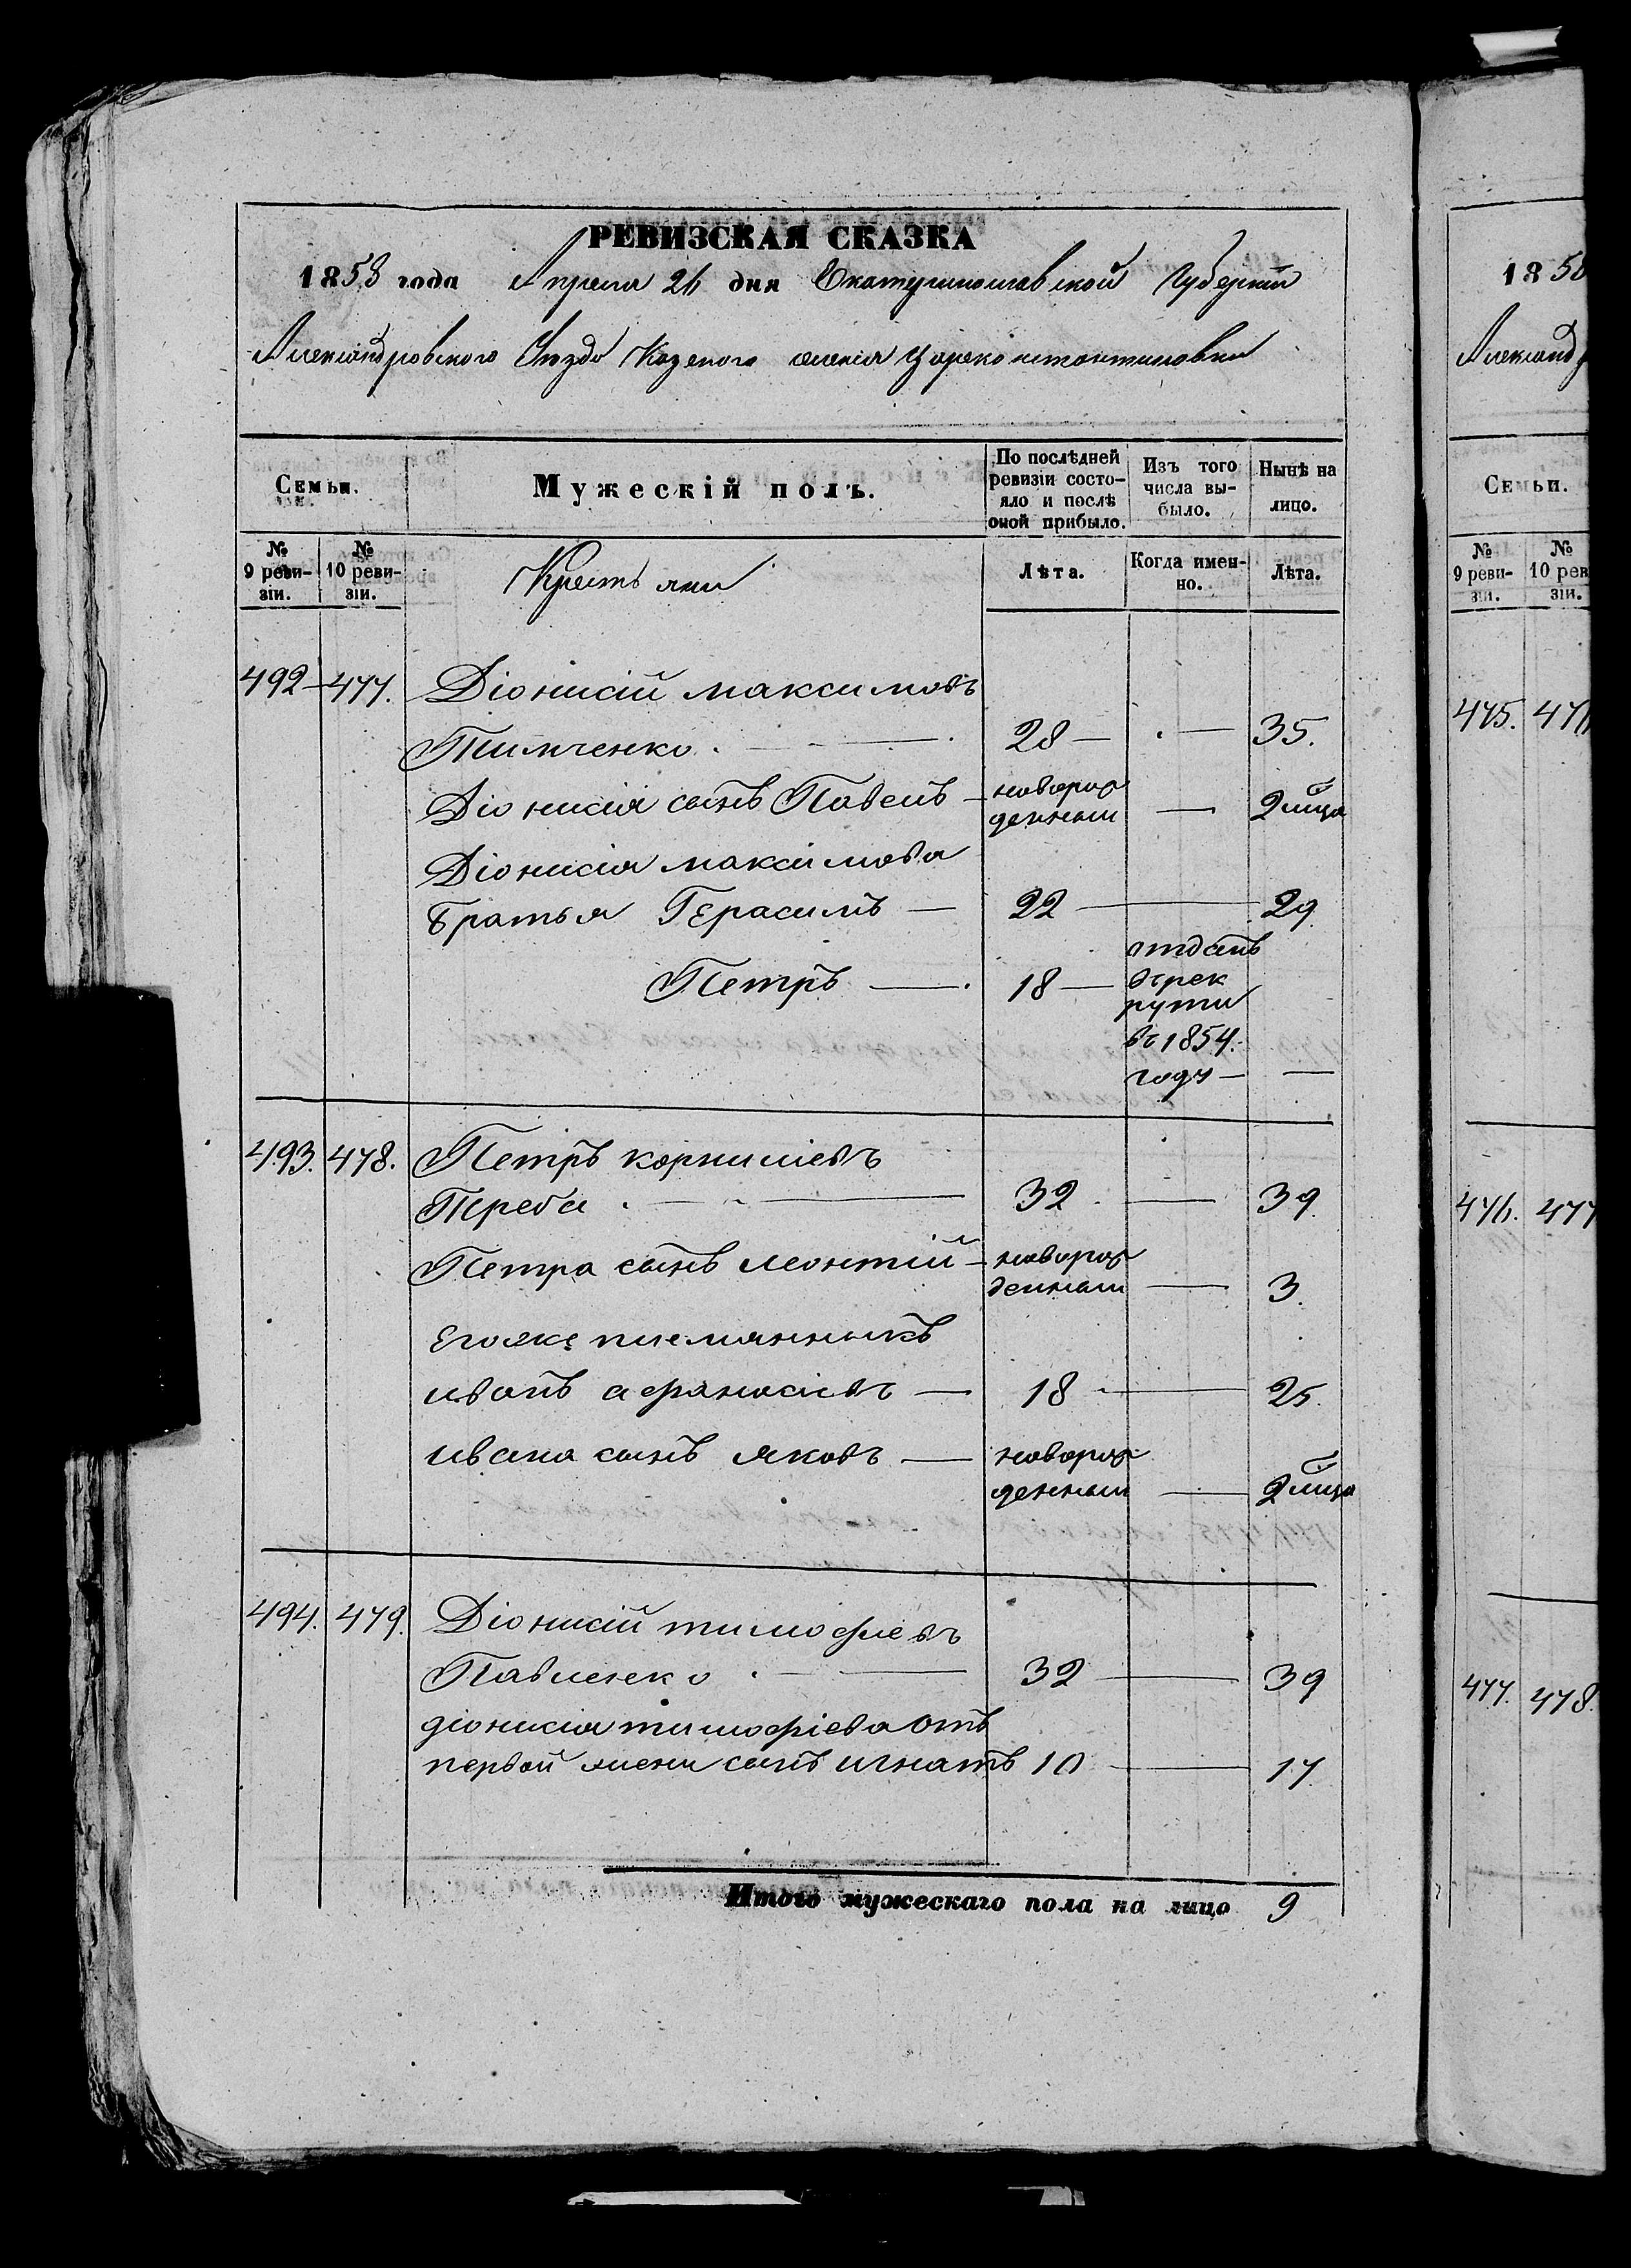 РЕВИЗСКАЯ СКАЗКА
1858 года Апреля 26 дня Екатеринославской Губернии
Александровского Уезда Казеного селенія Цареконстантиновки
Семьи.
Мужескій полъ.
По послѣдней ревизіи состо-яло и послѣ оной прибыло.
Изъ того числа вы-было.
Нынѣ на лицо.
№ 9 реви-зіи.
№ 10 реви-зіи.
Крестьяни
Лѣта.
Когда имен-но.
Лѣта.
492 – 477. Діонисій максимовъ
Тимченко. — 28 — . — 35.
Діонисія сынъ Павелъ — новорож
денный — 2 мца
Діонисія максимова
братья Герасимъ — 22 — 29
отданъ
Петръ — . 18 — в рек
руты
въ 1854.
году — —
493. 478. Петръ корнилієвъ
Тереба . — 32 . — 39.
Петра сынъ леонтій — новорож
денный — 3.
Егоже племянныкъ
иванъ афанасієвъ — 18 — 25.
ивана сынъ яковъ — новорож
денный — 2 мца
494. 479. Діонисій тимофіевъ
Павленко . — 32 — 39
діонисія тимофіева отъ
первой жены сынъ игнатъ 10 — 17.
Итого мужескаго пола на лицо 9
1858
Александр
Семьи.
№ 9 реви-зіи.
№ 10 рев зіи.
475. 476
476. 477
477. 478.